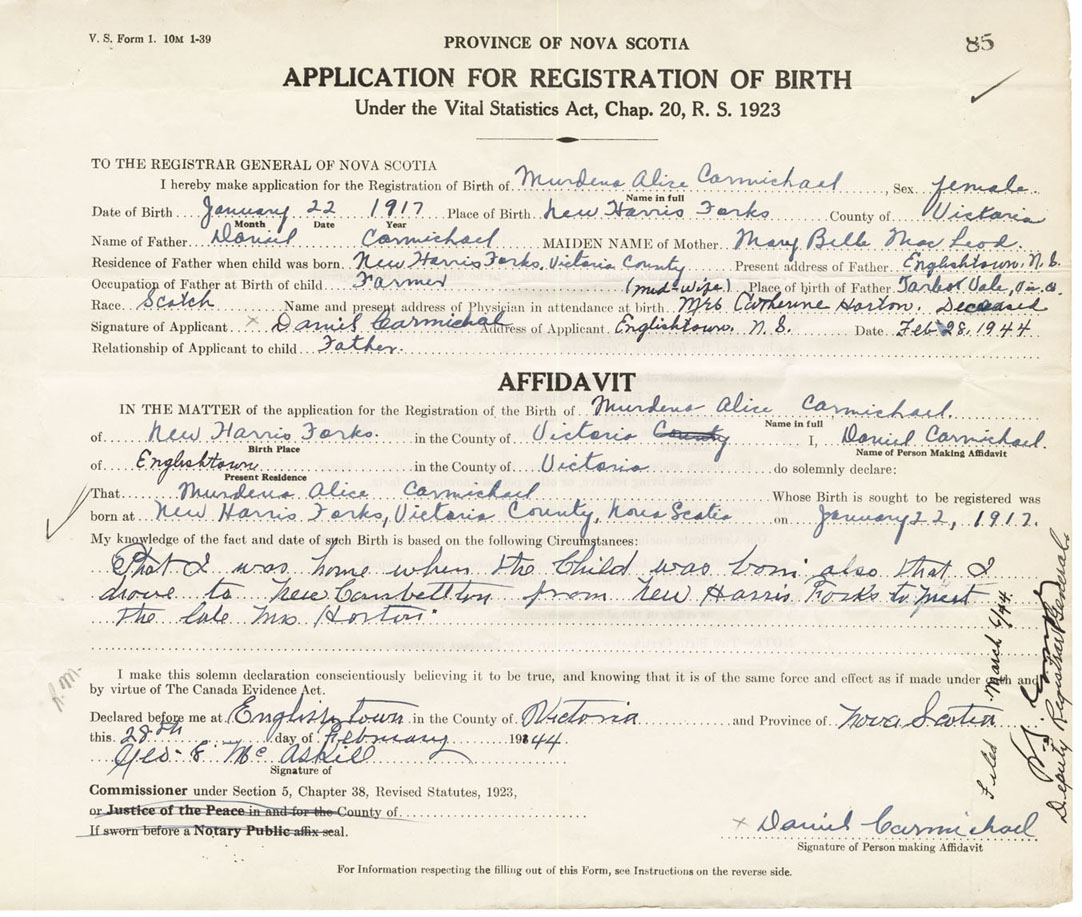 V. S. Form 1. 10M 1-39
85
PROVINCE OF NOVA SCOTIA
APPLICATION FOR REGISTRATION OF BIRTH
Under the Vital Statistics Act, Chap. 20, R. S. 1923
TO THE REGISTRAR GENERAL OF NOVA SCOTIA
I hereby make application for the Registration of Birth of Murdena Alice Carmichael, Sex female
Name in full
Date of Birth January 22 1917 Place of Birth New Harris Forks County of Victoria
Month Date Year
Name of Father Daniel Carmichael MAIDEN NAME of Mother Mary Belle MacLeod
Residence of Father when child was born New Harris Forks, Victoria County Present address of Father Englishtown. N. S.
Occupation of Father at Birth of child Farmer (mid-wife) Place of birth of Father Tarbot Vale, Vic. Co.
Race Scotch Name and present address of Physician in attendance at birth Mrs Catherine Horton. Deceased
Signature of Applicant x Daniel Carmichal Address of Applicant Englishtown. N. S. Date Feb 28, 1944
Relationship of Applicant to child Father.
AFFIDAVIT
IN THE MATTER of the application for the Registration of the Birth of Murdena Alice Carmichael
Name in full
of New Harris Forks. in the County of Victoria County I, Daniel Carmichael.
Birth Place Name of Person Making Affidavit
of Englishtown in the County of Victoria do solemnly declare:
Present Residence
That Murdena Alice Carmichael Whose Birth is sought to be registered was
born at New Harris Forks, Victoria County, Nova Scotia on January 22, 1917.
My knowledge of the fact and date of such Birth is based on the following Circumstances:
That I was home when the Child was born also that I
drove to New Cambellton from New Harris Forks to meet
the late Mrs Horton
I make this solemn declaration conscientiously believing it to be true, and knowing that it is of the same force and effect as if made under oath and
by virtue of The Canada Evidence Act.
Declared before me at Englishtown in the County of Victoria and Province of Nova Scotia
this 28th day of February 1944
Geo. E. McAskill
Signature of
Commissioner under Section 5, Chapter 38, Revised Statutes, 1923,
or Justice of the Peace in and for the County of
If sworn before a Notary Public affix seal.
x Daniel Carmichael
Signature of Person making Affidavit
For Information respecting the filling out of this Form, see Instructions on the reverse side.
Filed March 6/44
Deputy Registrar General.